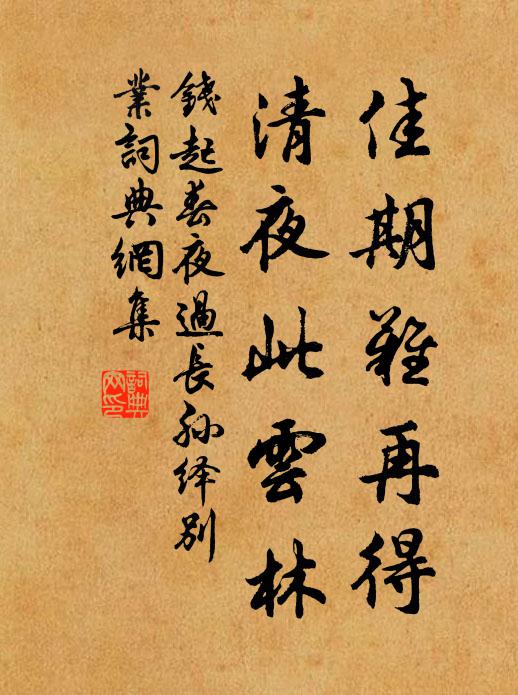 佳期難再得
清夜此雲林
錢起春夜過長孫绎别
業詞典網集
詞典網印